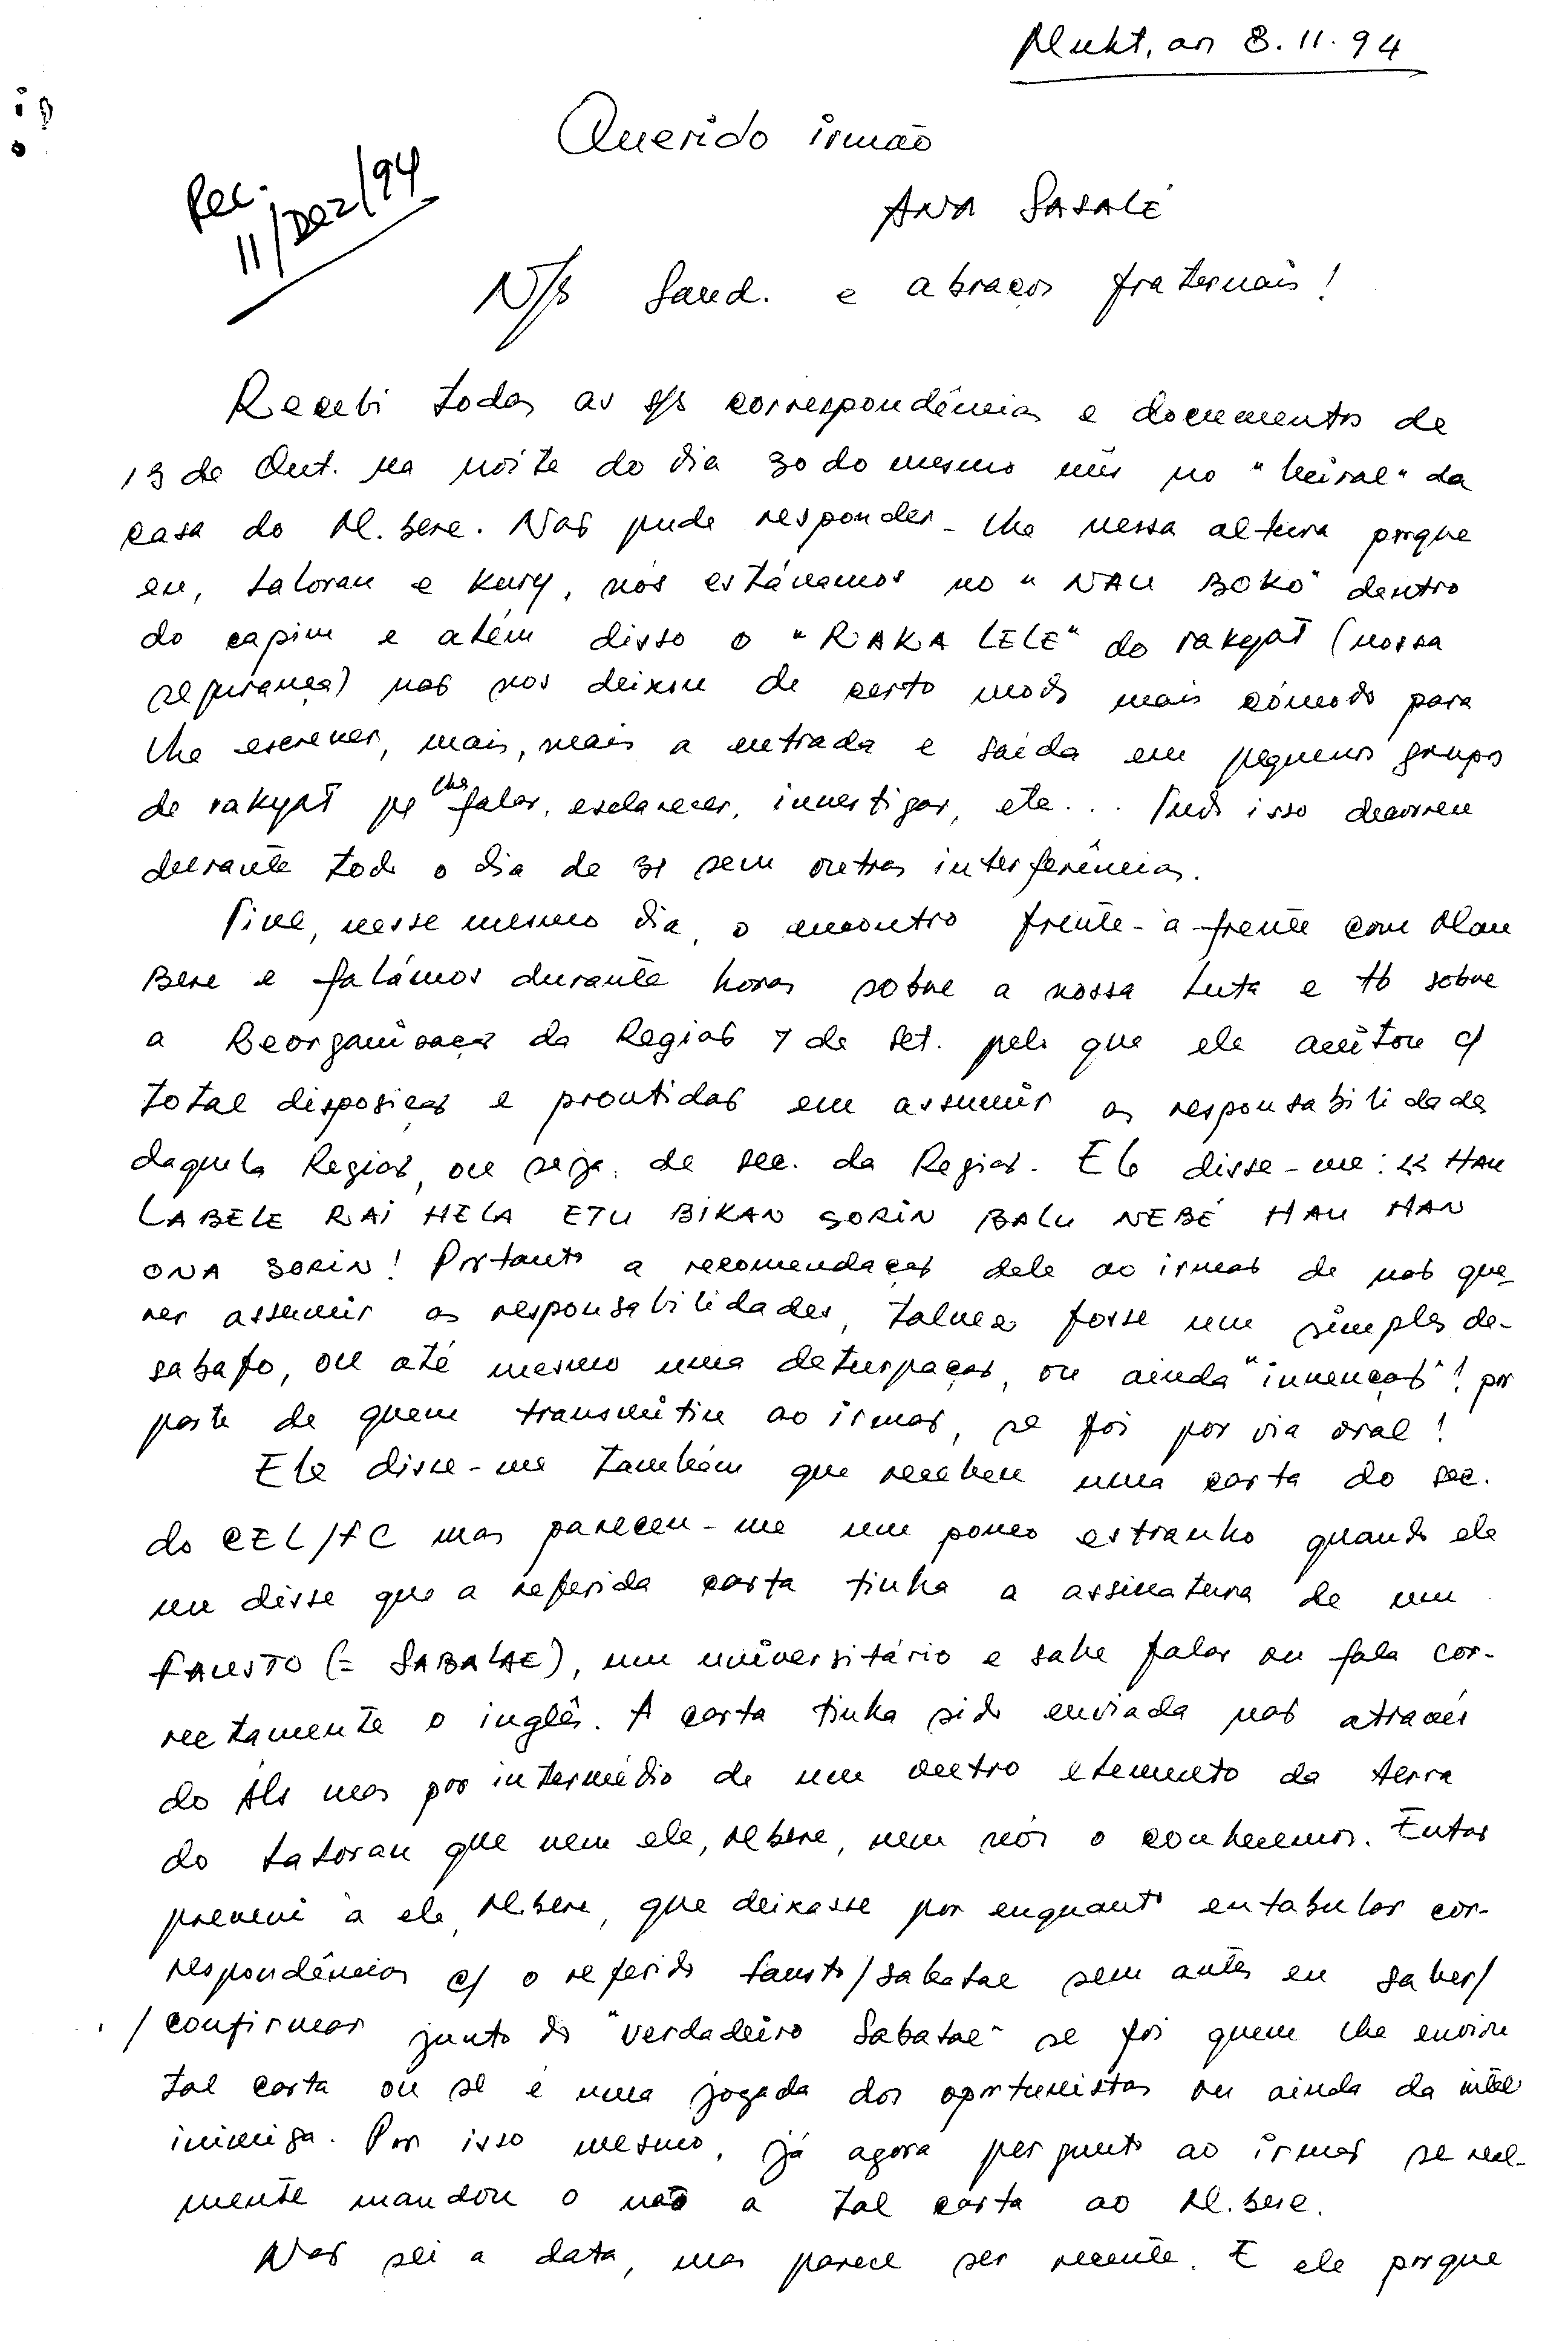 Mukt, aos 8.11.94
Querido irmão
Rec.
11/Dez/94
ANA SASALÉ
N/s Saud. e abraços fraternais!
Recebi todas as s/s correspondências e documentos de
13 de Out. na noite do dia 30 do mesmo mês no "beiral" da
casa do M. Bere. Não pude responder-lhe nessa altura porque
eu, Taloran e Kury, nós estávamos no "NAU BOKO" dentro
do capim e além disso o "RAKA LELE" do rakyat (nossa
segurança) não nos deixou de certo modo mais cómodo para
lhe escrever, mais, mais a entrada e saída em pequenos grupos
de rakyat pª lhes falar, esclarecer, investigar, etc... Tudo isso decorreu
durante todo o dia de 31 sem outras interferências.
Tive, nesse mesmo dia, o encontro frente-à-frente com Mau
Bere e falámos durante horas sobre a nossa luta e tb sobre
a Reorganização da Região 7 de Set. pelo que ele aceitou c/
total disposição e prontidão em assumir as responsabilidades
daquela Região, ou seja, de sec. da Região. Ele disse-me: << HAU
LABELE RAI HELA ETU BIKAN SORIN BALU NEBÉ HAU HAN
ONA SORIN! Portanto a recomendação dele ao irmão de não que-
rer assumir as responsabilidades, talvez fosse um simples de-
sabafo, ou até mesmo uma deturpação, ou ainda "invenção"! por
parte de quem transmitiu ao irmão, se foi por via oral!
Ele disse-me também que recebeu uma carta do sec.
do CEL/FC mas pareceu-me um pouco estranho quando ele
me disse que a referida carta tinha a assinatura de um
FAUSTO (= SABALAE), um universitário e sabe falar ou fala cor-
rectamente o inglês. A carta tinha sido enviada não através
do Als mas por intermédio de um outro elemento da terra
do Taloran que nem ele, M.bere, nem nós o conhecemos. Então
preveni a ele, M.bere, que deixasse por enquanto entabular cor-
respondências c/ o referido Fausto/Sabalae sem antes eu saber/
/confirmar junto do "verdadeiro Sabalae" se foi quem lhe enviou
tal carta ou se é uma jogada dos oportunistas ou ainda da intel
inimiga. Por isso mesmo, já agora pergunto ao irmão se real-
mente mandou o não a tal carta ao M.bere.
Não sei a data, mas parece ser recente. E ele porque